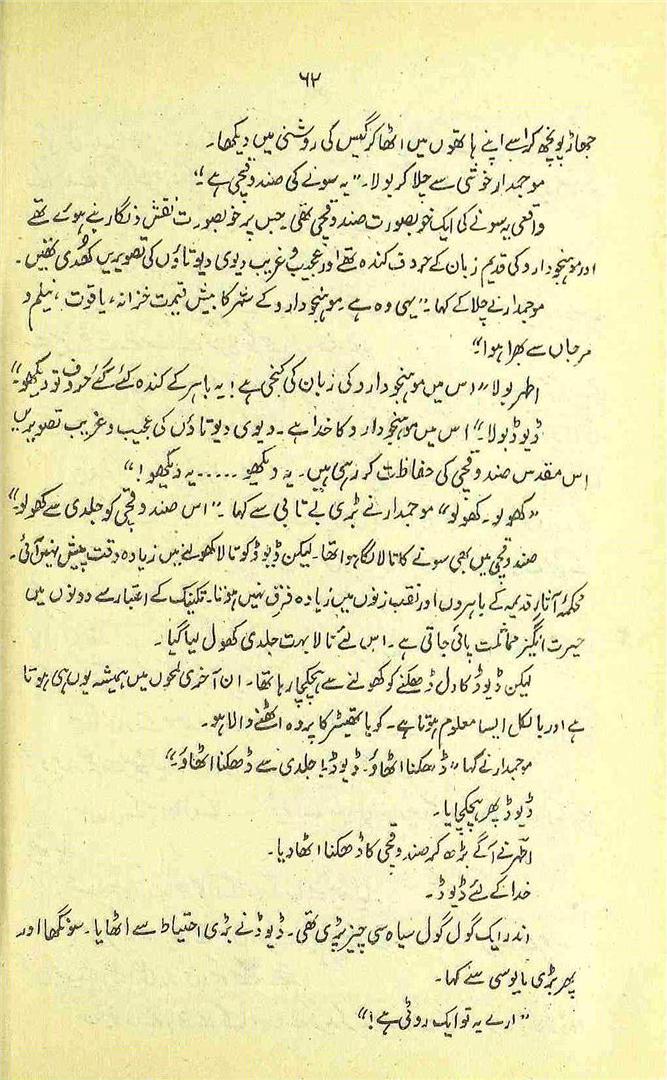 ۶۲
جھاڑ پونچھ کر اسے اپنے ہاتھوں میں اٹھا کر گیس کی روشنی میں دیکھا۔
موجمدار خوشی سے چلا کر بولا۔ ”یہ سونے کی صندوقچی ہے“۔
واقعی یہ سونے کی ایک خوبصورت صندوقچی تھی۔ جس پر خوبصورت نقش و نگار بنے ہوئے تھے
اور موہنجودارو کی قدیم زبان کے حروف کندہ تھے اور عجیب و غریب دیوی دیوتاؤں کی تصویریں کھُدی تھیں۔
موجمدار نے چلا کے کہا۔ ”یہی وہ ہے۔ موہنجودارو کے شہر کا بیش قیمت خزانہ، یاقوت، نیلم و
مرجاں سے بھرا ہوا۔“
اظہر بولا ”اس میں موہنجودارو کی زبان کی کنجی ہے! یہ باہر کے کندہ کئے گئے حروف تو دیکھو۔“
ڈیوڈ بولا۔ ”اس میں موہنجودارو کا خدا ہے۔ دیوی دیوتاؤں کی عجیب و غریب تصویریں
اس مقدس صندوقچی کی حفاظت کر رہی ہیں۔ یہ دیکھو ..... یہ دیکھو!“
”کھولو۔ کھولو“ موجمدار نے بڑی بے تابی سے کہا۔ ”اس صندوقچی کو جلدی سے کھولو۔“
صندوقچی میں بھی سونے کا تالا لگا ہوا تھا۔ لیکن ڈیوڈ کو تالا کھولنے میں زیادہ دقت پیش نہیں آئی۔
محکمۂ آثار قدیمہ کے ماہروں اور نقب زنوں میں زیادہ فرق نہیں ہوتا۔ تکنیک کے اعتبار سے دونوں میں
حیرت انگیز مماثلت پائی جاتی ہے۔ اس لئے تالا بہت جلدی کھول لیا گیا۔
لیکن ڈیوڈ کا دل ڈھکنے کو کھولنے سے ہچکچا رہا تھا۔ ان آخری لمحوں میں ہمیشہ یوں ہی ہوتا
ہے اور بالکل ایسا معلوم ہوتا ہے۔ گویا تھیٹر کا پردہ اٹھنے والا ہو۔
موجمدار نے کہا ”ڈھکنا اٹھاؤ۔ ڈیوڈ! جلدی سے ڈھکنا اٹھاؤ۔“
ڈیوڈ پھر ہچکچایا۔
اظہر نے آگے بڑھ کر صندوقچی کا ڈھکنا اٹھا دیا۔
خدا کے لئے ڈیوڈ۔
اندر ایک گول گول سیاہ سی چیز پڑی تھی۔ ڈیوڈ نے بڑی احتیاط سے اٹھایا۔ سونگھا اور
پھر بڑی مایوسی سے کہا۔
”ارے یہ تو ایک روٹی ہے!“